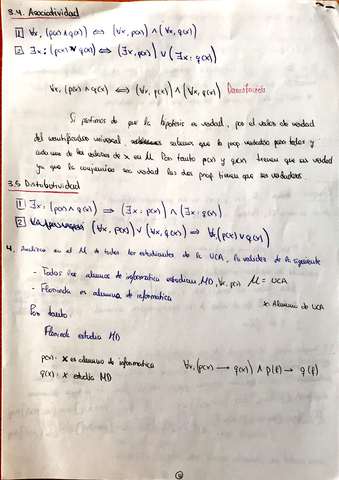 3.4. Asociatividad
1 ∀x, (p(x) ∧ q(x)) ⟺ (∀x, p(x)) ∧ (∀x, q(x))
2 ∃x: (p(x) ∨ q(x)) ⟺ (∃x: p(x)) ∨ (∃x: q(x))
∀x, (p(x) ∧ q(x)) ⟺ (∀x, p(x)) ∧ (∀x, q(x)) Demostración
Si partimos de que la hipótesis es verdad, por el valor de verdad
del cuantificador universal sabemos que la prop verdadera para todos y
cada uno de los valores de x en U. Por tanto p(x) y q(x) tienen que ser verdad
ya que la conjunción sea verdad las dos prop. tienen que ser verdaderas.
3.5 Distributividad
1 ∃x: (p(x) ∧ q(x)) ⟹ (∃x: p(x)) ∧ (∃x: q(x))
2 (∀x, p(x)) ∨ (∀x, q(x)) ⟹ ∀x, (p(x) ∨ q(x))
4. Analiza en el U de todos los estudiantes de la UCA, la validez de lo siguiente
- Todos los alumnos de informatica estudian MD, ∀x, p(x) U = UCA
- Florinda es alumna de informatica x: Alumno de UCA
Por tanto:
Florinda estudia MD
p(x): x es alumno de informatica ∀x, (p(x) → q(x)) ∧ p(f) → q(f)
q(x): x estudia MD